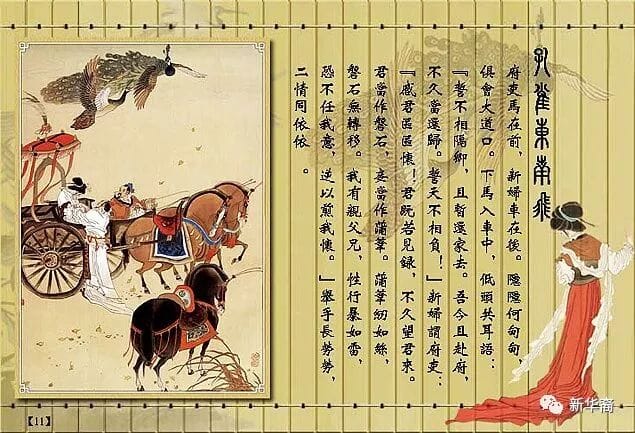 孔雀東南飛
府吏馬在前，新婦車在後。隱隱何甸甸，
俱會大道口。下馬入車中，低頭共耳語：
『誓不相陽卿，且暫還家去。吾今且赴府，
不久當還歸。誓天不相負！』新婦謂府吏：
『感君區區懷！君既若見録，不久望君來。
君當作磐石，妾當作蒲葦。蒲葦紉如絲，
磐石無轉移。我有親父兄，性行暴如雷，
恐不任我意，逆以煎我懷。』舉手長勞勞，
二情同依依。
【11】
新华裔